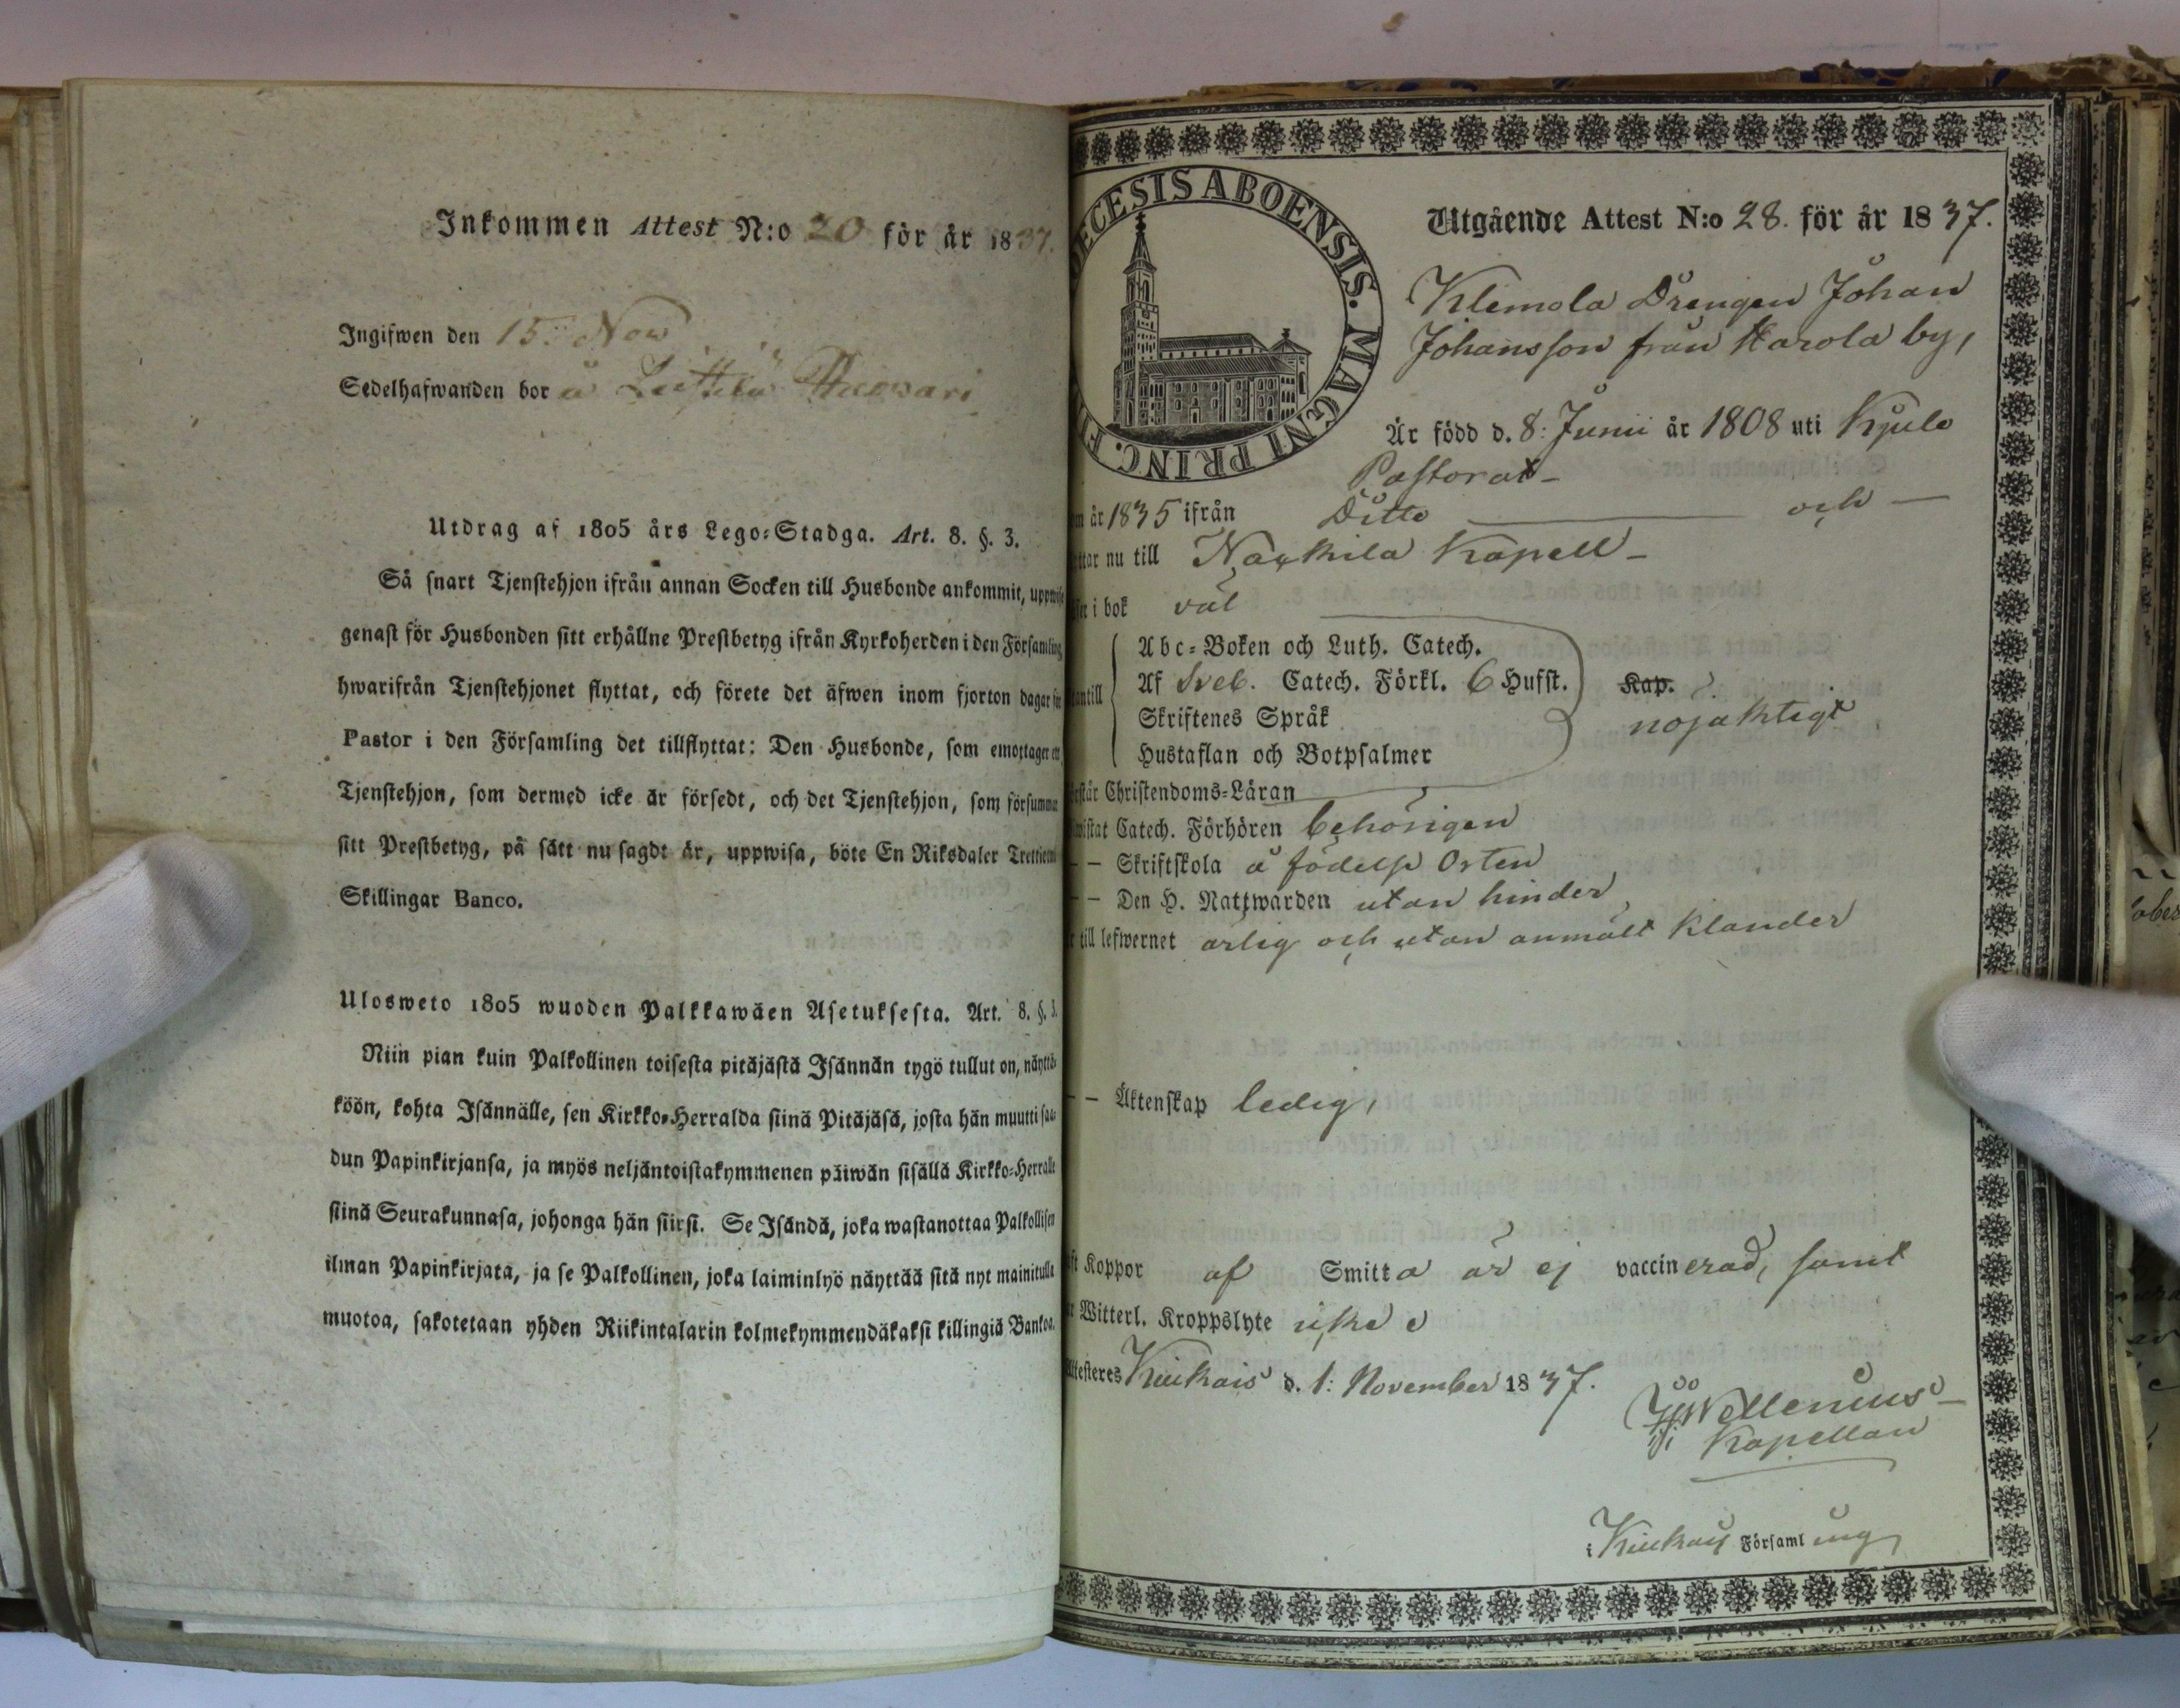 Inkommen Attest N:o 20 för år 1837.
Ingifwen den 15: Nov
Sedelhafwanden bor å
Utdrag af 1805 års Lego-Stadga. Art. 8. §. 3.
Så snart Tjenstehjon ifrån annan Socken till Husbonde ankommit, uppwise
genast för Husbonden sitt erhållne Prestbetyg ifrån Kyrkoherden i den Församling
hwarifrån Tjenstehjonet flyttat, och förete det äfwen inom fjorton dagar för
Pastor i den Församling det tillflyttat: Den Husbonde, som emottager ett
Tjenstehjon, som dermed icke är försedt, och det Tjenstehjon, som försummar
sitt Prestbetyg, på sätt nu sagdt är, uppwisa, böte En Riksdaler Trettietwå
Skillingar Banco.
Ulosweto 1805 wuoden Palkkawäen Asetuksesta. Art. 8. §. 3.
Niin pian kuin Palkollinen toisesta pitäjästä Isännän tygö tullut on, näyttä-
köön, kohta Isännälle, sen Kirkko-Herralda siinä Pitäjäsä, josta hän muutti saa-
dun Papinkirjansa, ja myös neljäntoistakymmenen päiwän sisällä Kirkko-Herralle
siinä Seurakunnasa, johonga hän siirsi. Se Isändä, joka wastanottaa Palkollisen
ilman Papinkirjata, ja se Palkollinen, joka laiminlyö näyttää sitä nyt mainitulla
muotoa, sakotetaan yhden Riikintalarin kolmekymmendäkaksi killingiä Bankoa.
ECESIS ABOENSIS. MAGNI PRINC. F
Utgående Attest N:o 28. för år 1837.
Klemola Drengen Johan
Johansson från Karola by,
Är född d. 8: Junii år 1808 uti Kjulo
Pastorat
år 1835 ifrån Ditto och
nu till Nackila Kapell
i bok väl
Abc-Boken och Luth. Catech.
Af Sveb. Catech. Förkl. 6 Hufst. Kap.
Skriftenes Språk nöjaktigt
Hustaflan och Botpsalmer
Christendoms-Läran
Catech. Förhören behörigen
– – Skriftskola å födelse Orten
– – Den H. Nattwarden utan hinder
till lefwernet ärlig och utan anmält klander
– – Äktenskap ledig,
Koppor af Smitta är ej vaccinerad, samt
Witterl. Kroppslyte icke
Attesteres Kiukais d. 1: November 1837.
Wellenius
Kapellan
i Kiukais Församling